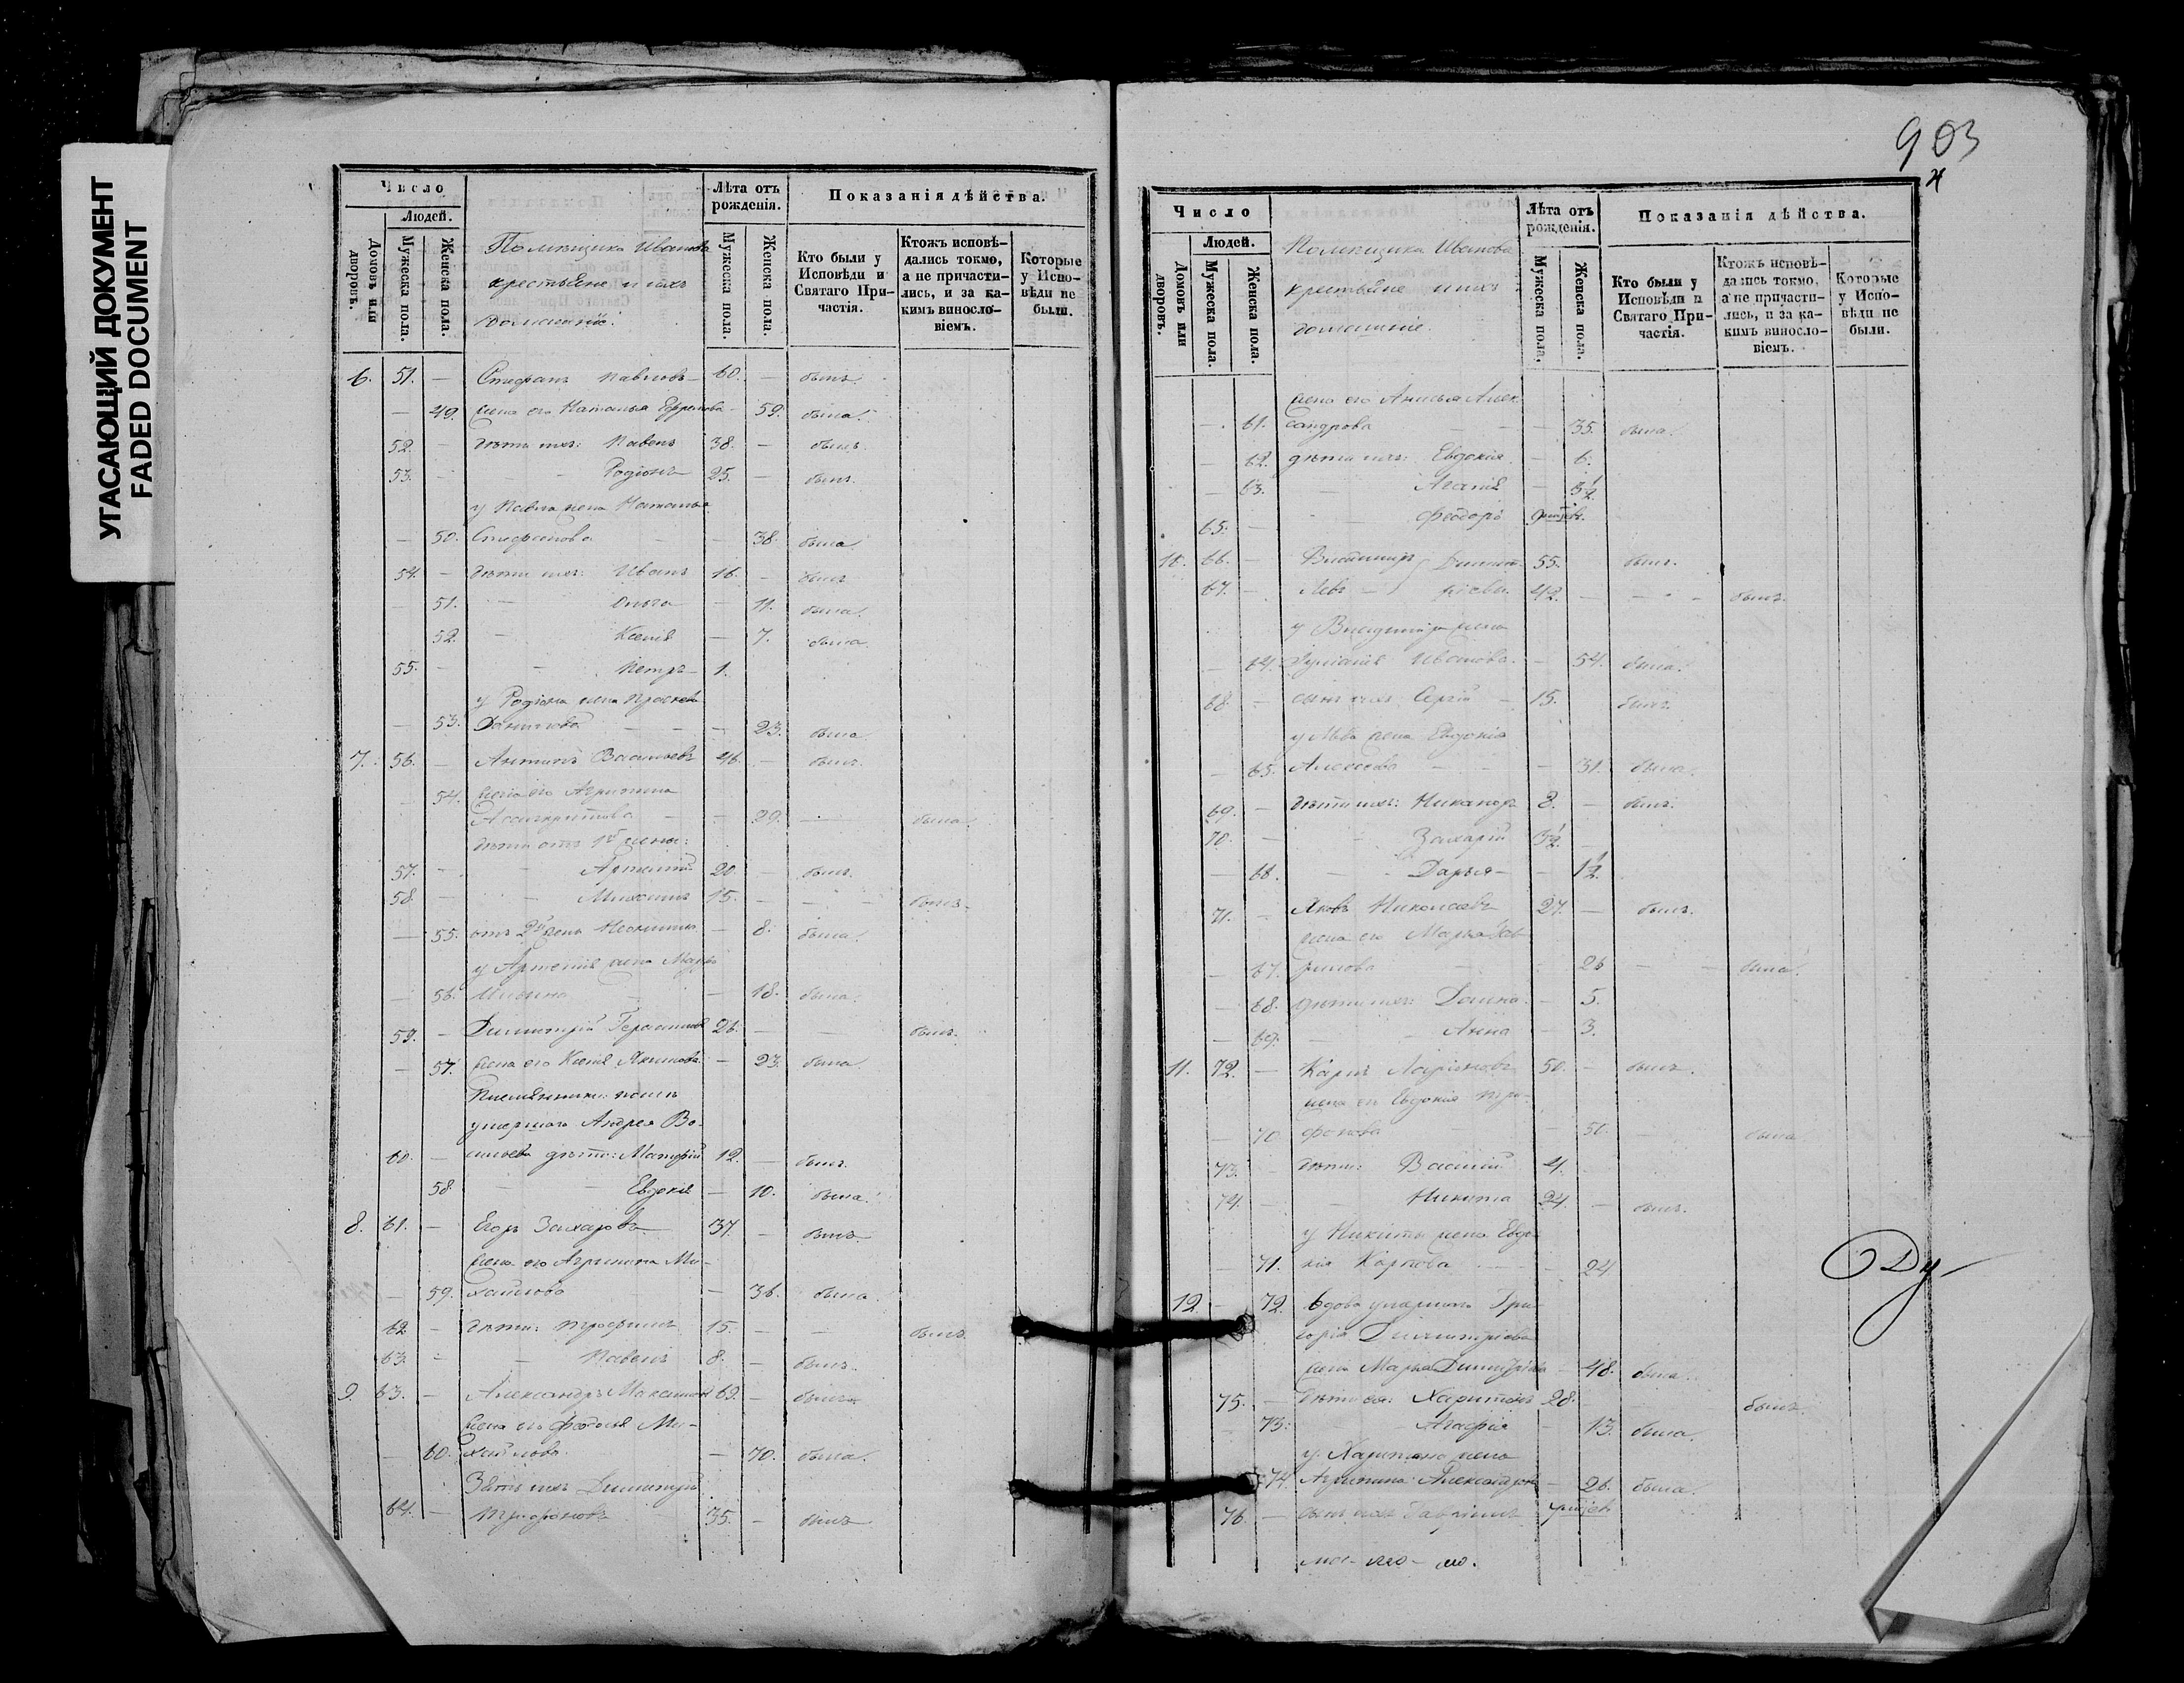 УГАСАЮЩИЙ ДОКУМЕНТ
FADED DOCUMENT
Число
Людей.
Домовъ или дворовъ.
Мужеска пола.
Женска пола.
Помѣщика Иванова
крестьяне и ихъ
домашніе.
Лѣта отъ рожденія.
Мужеска пола.
Женска пола.
Показанія дѣйства.
Кто были у Исповѣди и Святаго Причастія.
Ктожъ исповѣдались токмо, а не причастились, и за какимъ винословіемъ.
Которые у Исповѣди не были.
6. 51. — Стефанъ Павловъ 60. — былъ.
— 49. жена его Наталья Ефремова — 59. была.
52. — дѣти ихъ: Павелъ 38. — былъ.
53. — Родіонъ 25. — былъ.
у Павла жена Наталья
— 50. Стефанова — 38. была.
54. — дѣти ихъ: Иванъ 16. — былъ
— 51. Ольга — 11. была.
52. — Ксенія — 7. была.
55. — Петръ 1.
у Родіона жена
— 53. Данилова — 23. была
7. 56. — Антипъ Васильевъ 46. — былъ.
54. жена его Агрипина
— 29. — была.
дѣти отъ 1й жены:
57. — Артемій 20. — былъ.
58. — Михаилъ 15. — былъ.
— 55. отъ 2й жены — 8. была.
у Артемія жена Марѳа
— 56. Ильина — 18. была.
59. — Димитрій Герасимовъ 26. — былъ.
— 57. жена его Ксенія Якимова — 23. была.
Племянники
умершаго Андрея Ва-
60. — сильева дѣти: 12. — былъ.
58 — Евдокія — 10. была.
8. 61. — Егоръ Захаровъ 37. — былъ.
жена его Агрипина Ми-
— 59. хайлова — 36. была.
62 — дѣти: Трофимъ 15. — былъ.
63. — Павелъ 8. — былъ.
9. 63. — Александръ Максимовъ 69. — былъ.
жена его Федосья Ми-
— 60. хайлова — 70. была.
Зять ихъ Димитрій
64. — Трифоновъ 35. — былъ
903
4
Число
Людей.
Домовъ или дворовъ.
Мужеска пола.
Женска пола.
Помѣщика Иванова
крестьяне и ихъ
домашніе.
Лѣта отъ рожденія.
Мужеска пола.
Женска пола.
Показанія дѣйства.
Кто были у Исповѣди и Святаго Причастія.
Ктожъ исповѣдались токмо, а не причастились, и за какимъ винословіемъ.
Которые у Исповѣди не были.
жена его Анисья Алек-
— 61. сандрова — 35. была.
— 62. дѣти ихъ: Евдокія — 6.
— 63. Агапія — 3½.
65. — Феодоръ
10. 66. — Владиміръ Димит- 55. былъ.
67. — Левъ — ріевы 42. — былъ.
у Владиміра жена
— 64. Іуліанія Иванова — 54. была.
68. — сынъ ихъ Сергій 15. былъ.
у Льва жена Евдокія
— 65. Алексеева — 31. была.
69. — дѣти ихъ: Никаноръ 8. — былъ.
70. — Захарій 3½.
— 66. Дарья — 1½.
71. — Яковъ Николаевъ 27. — былъ.
жена его Марья Гав-
— 67. рилова 26 — была.
— 68. дѣти ихъ: — 5.
— 69. Анна — 3.
11. 72. — Карпъ Ларіоновъ 50. — былъ.
жена его Евдокія Три-
— 70 фонова — 50. — была
73. — дѣти: Василій 4.
74. — Никита 24. — былъ.
у Никиты жена Евдо-
— 71. кія Карпова — 24
12 — 72. вдова умершаго Гри-
горія Димитріева
жена Марья Димитріева — 48. была.
75. — дѣти ея: Харитонъ 28. былъ.
— 73. Агафія — 13. была.
у Харитона жена
74. Агрипина Александрова — 26. была.
76. — сынъ ихъ Гавріилъ
Ду-